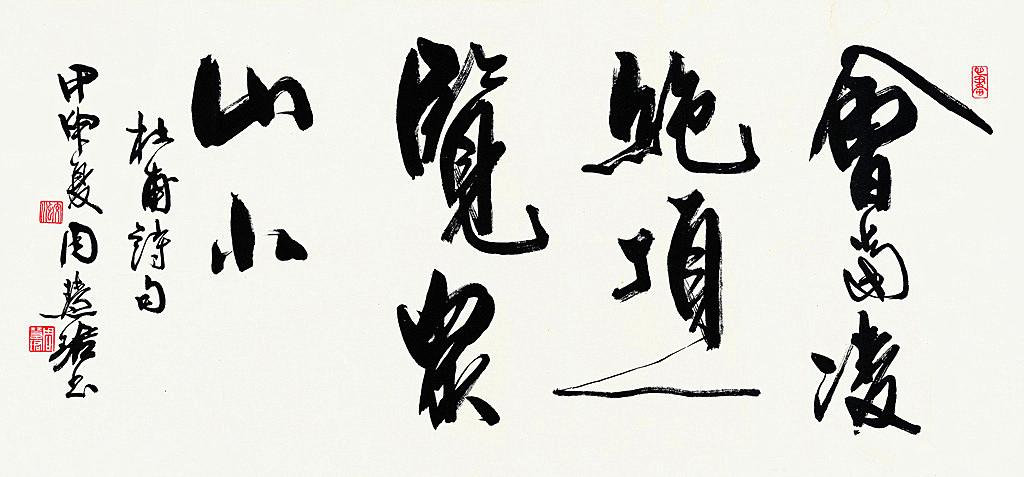 會當凌
絶頂一
覽眾
山小
杜甫詩句
甲申夏周慧珺书